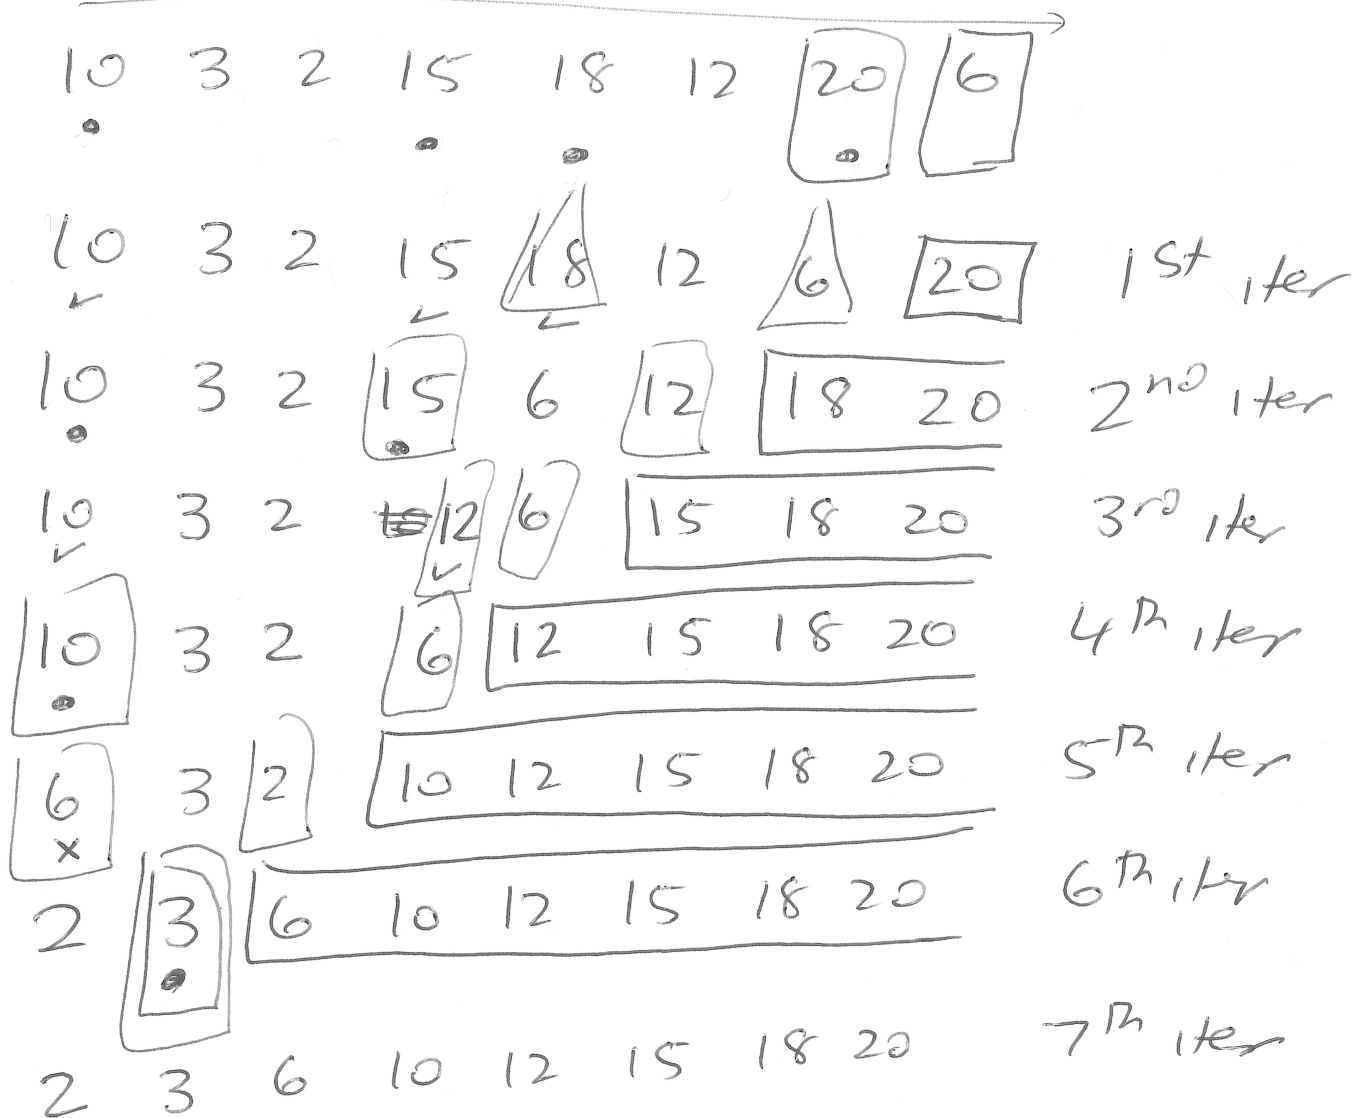 10 3 2 15 18 12 20 6
10 3 2 15 18 12 6 20 1st iter
10 3 2 15 6 12 18 20 2nd iter
10 3 2 12 6 15 18 20 3rd iter
10 3 2 6 12 15 18 20 4th iter
6 3 2 10 12 15 18 20 5th iter
2 3 6 10 12 15 18 20 6th iter
2 3 6 10 12 15 18 20 7th iter